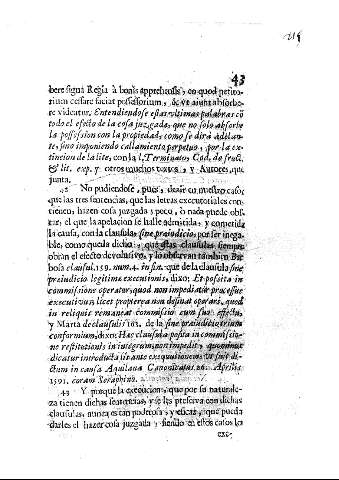 43
bere signa Regia à bonis apprehensis, en quod petito-
rium cessare faciat possessorium, & ve aiunt absorbe-
re videatur. Entendiendose estas vltimas palabras cō
todo el efecto de la cosa juzgada, que no solo absorbe
la possession con la propiedad, como se dirà adelan-
te, sino imponiendo callamiento perpetuo, por la ex-
tincion de la lite, con la l. Terminato, Cod. de fruct.
& lit. exp. y otros muchos textos, y Autores, que
junta.
42 No pudiendose, pues, dezir en nuestro caso,
que las tres sentencias, que las letras executoriales con-
tienen, hazen cosa juzgada; poco, ò nada puede obs-
tar, el que la apelacion se halle admitida, y cometida
la causa, con la clausula, sine praeiudicio, por ser inega-
ble, como queda dicho, que estas clausulas siempre
obran el efecto devolutivo, y lo observan tambien Bar-
bosa clausul. 159. num. 4. in fin. que de la clausula sine
praeiudicio legitimae executionis, dixo: Et posita in
commissione operatur, quod non impediatur processus
executivus, licet propterea non desinat operari, quod
in reliquis remaneat commissio cum suo effectu,
y Marta de clausulis 162. de la sine praeiudicio trium
conformium, dixo: Haec clausula posita in commissio-
ne restitutionis in integrum, non impedit, quominus
dicatur introducta lis ante exequutionem, vt fuit di-
ctum in causa Aquilana Canonicatus 26. Aprilis
1591. coram Seraphino.
43 Y porque la execucion, que por su naturale-
za tienen dichas sentencias, y se les preserva con dichas
clausulas, nunca es tan poderosa, y eficaz, que pueda
darles el hazer cosa juzgada, y siendo en estos casos la
exe-